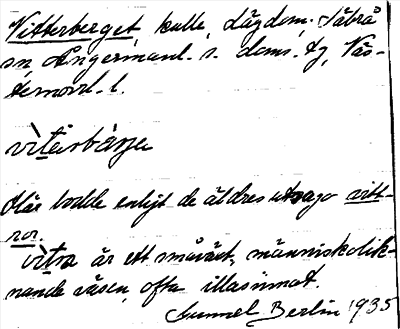 Vitterberget, kulle, Lägdom, Säbrå
sn, Ångermanl. s. doms. tg, Väs-
ternorrl. l.
vìtẹrbärje
Här bodde enligt de äldres utsago vitt-
ror.
vìtra är ett småväxt, människolik-
nande väsen, ofta illasinnat.
Gunnel Berlin 1935